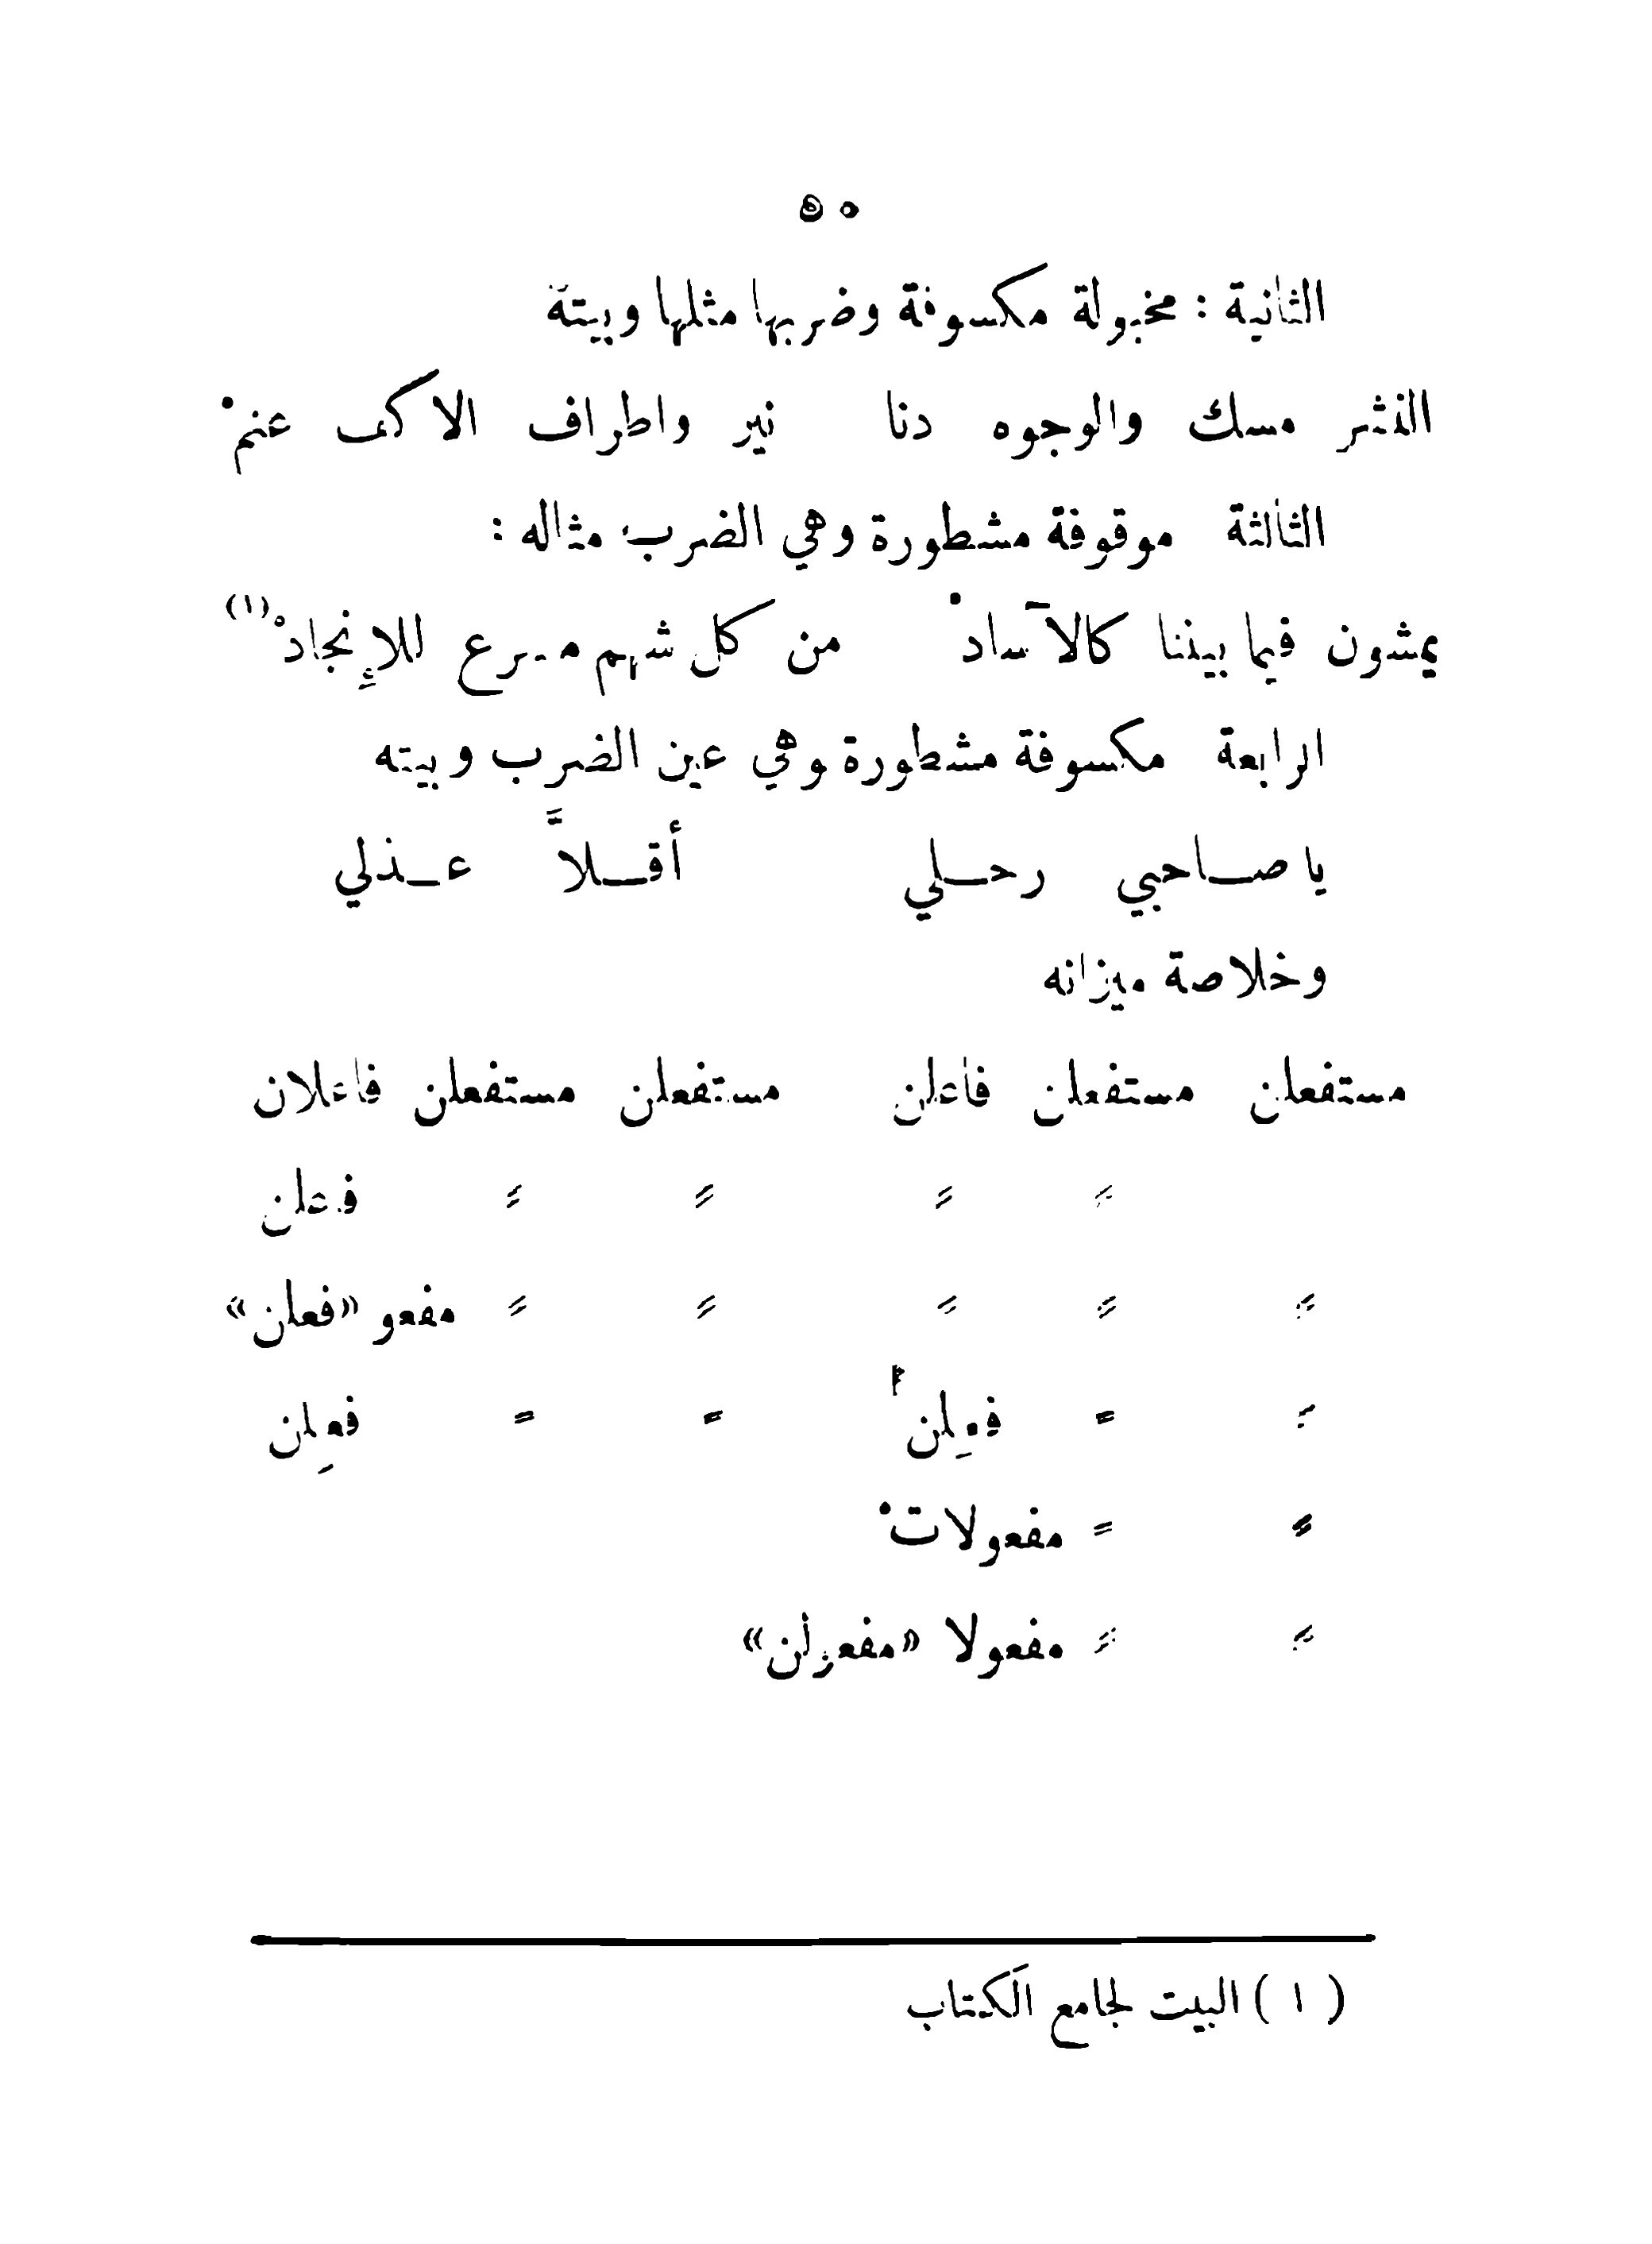 ٥٠
الثانية : مخبولة مكسوفة وضربها مثلها وبيتة
النشر مسك والوجوه دنا نير واطراف الاكف عنمْ
الثالثة موقوفة مشطورة وهي الضرب مثاله :
يمشون فيما بيننا كالآسادْ من كل شهم مسرع للإنجادْ (١)
الرابعة مكسوفة مشطورة وهي عين الضرب وبيته
يا صــاحبي رحــلي أقــلاًّ عــذلي
وخلاصة ميزانه
مستفعلن مستفعلن فاعلن مستفعلن مستفعلن فاعلان
〃 〃 〃 〃 فاعلن
〃 〃 〃 〃 〃 مفعو «فعلن»
〃 〃 فعِلن 〃 〃 فعِلن
〃 〃 مفعولاتْ
〃 〃 مفعولا «مفعولن»
( ١ ) البيت لجامع الكتاب